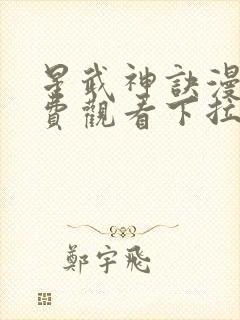 星武神訣漫
費觀看下拉
鄭宇飛